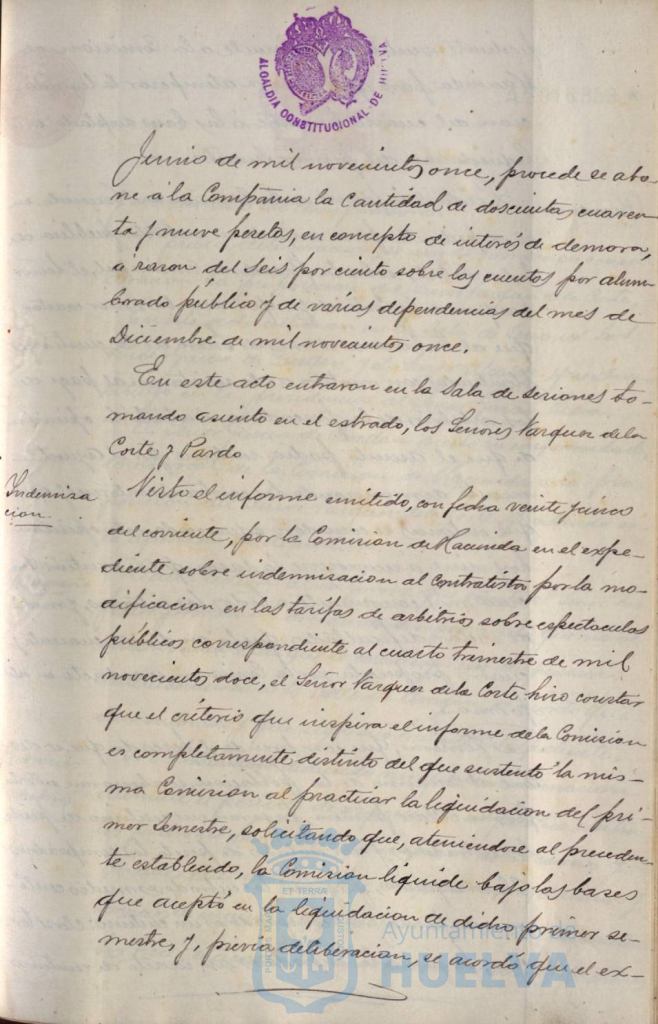 ALCALDIA CONSTITUCIONAL DE HUELVA
Junio de mil novecientos once, procede se abo-
ne á la Compañia la cantidad de doscientas cuaren-
ta y nueve pesetas, en concepto de interés de demora,
á razon del seis por ciento sobre las cuentas por alum-
brado público y de várias dependencias del mes de
Diciembre de mil novecientos once.
En este acto entraron en la Sala de sesiones to-
mando asiento en el estrado, los Señores Vazquez de la
Corte y Pardo
Indemniza
cion
Visto el informe emitido, con fecha veinte y cinco
del corriente, por la Comision de Hacienda en el expe-
diente sobre indemnisacion al Contratista por la mo-
dificacion en las tarifas de arbitrios sobre espectaculos
públicos correspondiente al cuarto trimestre de mil
novecientos doce, el Señor Vazquez de la Corte hizo constar
que el criterio que inspira el informe de la Comision
es completamente distinto del que sustentó la mis-
ma Comision al practicar la liquidacion del pri-
mer Semestre, solicitando que, ateniendose al preceden-
te establecido, la Comision liquide bajo las bases
que aceptó en la liquidacion de dicho primer se-
mestre, y, prévia deliberacion, se acordó que el ex-
PORTUS MARIS ET TERRÆ CUSTODIA
Ayuntamiento de
HUELVA